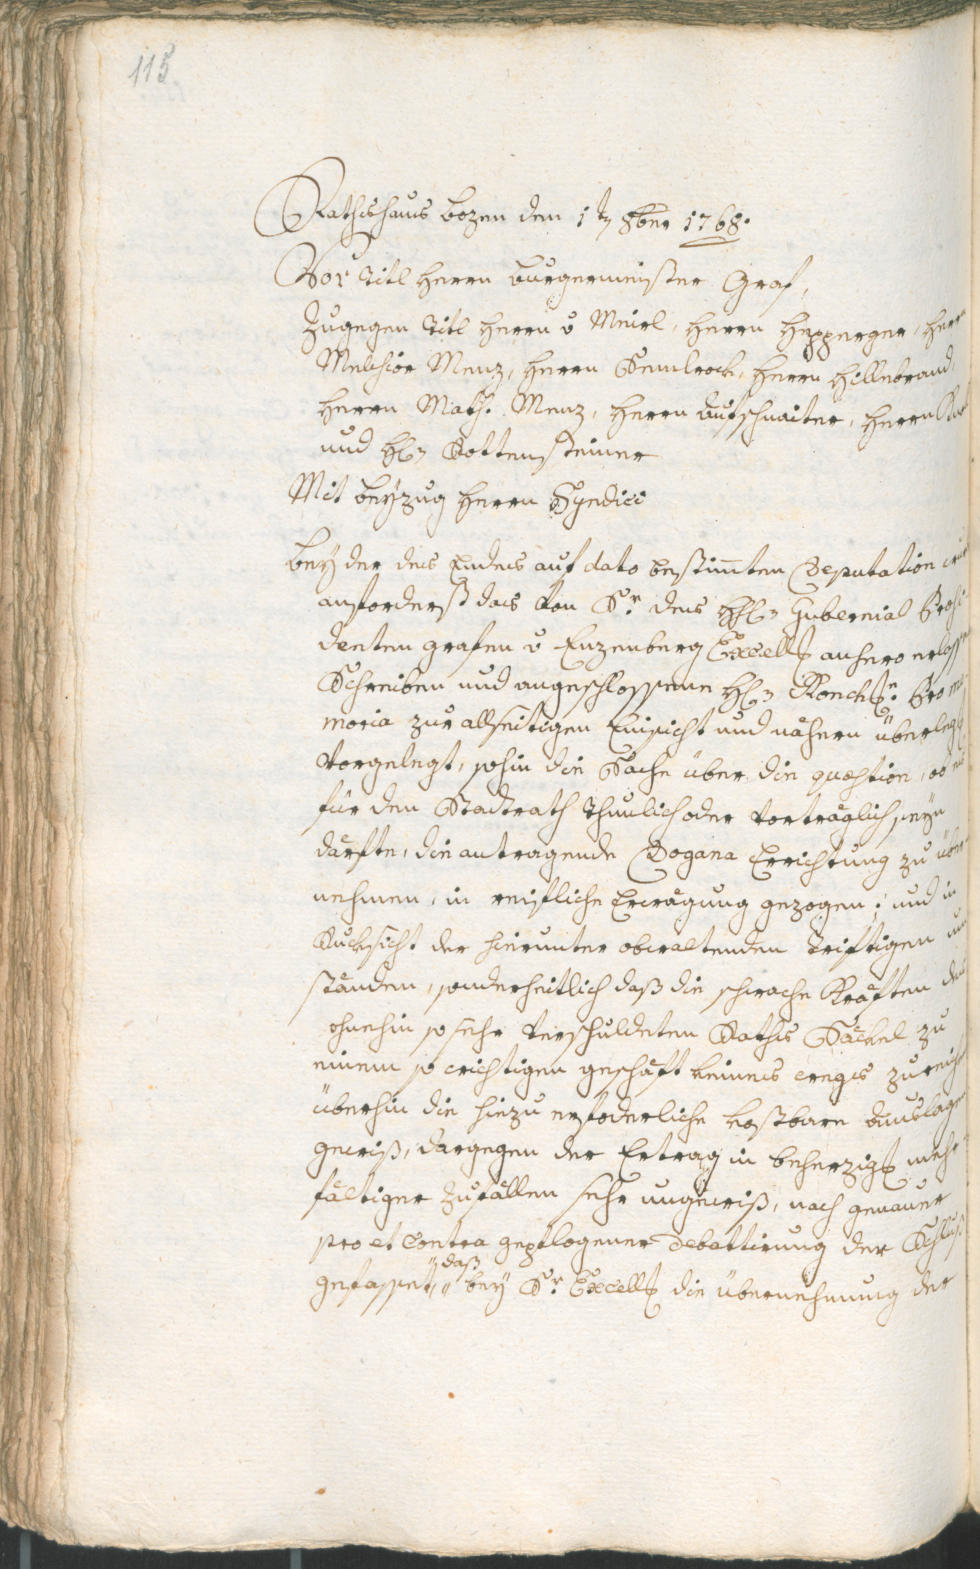 115
Rathshaus Bozen den 1ten 8ber 1768.
Vor Titl Herrn Burgermeister Graf,
Zugegen Titl Herrn v Meirl, Herrn Hepperger, Herrn
Melchior Menz, Herrn Gumbrock, Herrn Hillebrand,
Herrn Math. Menz, Herrn Aufschnaiter, Herrn
und H. Rottensteiner
Mit beyzug Herrn Syndici
Bey der des Endes auf dato bestim̅ten Deputation
anforderst das von Sr. des H. Gubernial Præsi
denten grafen v Enzenberg Excell anhero erlassene
Schreiben und angeschlossene H. Pro me
moria zur allseitigen Einsicht und nähern überlegg
vorgelegt, sohin die Sache über die quæstion, ob es
für den Stadtrath thunlich oder vorträglich seyn
därfte, die antragende Dogana Errichtung zu über
nehmen, in reifliche Erwägung gezogen; und in
Rucksicht der hierunter obwaltenden triftigen um
ständen, sonderheitlich daß die schwache Kräften des
ohnehin so sehr verschuldeten Raths Säckel zu
einem so wichtigen geschäft keines wegs zureichen
überhin die hiezu erforderliche kostbare Auslagen
gewiß, dargegen der Ertrag in beherzigg mehr
fältiger Zufällen sehr ungewiß, nach genauer
pro et contra gepflogener Debattirung der Schluß
gefasset, daß bey Sr. Excell die übernehmung der